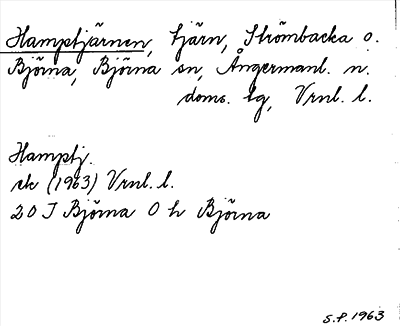 Hamptjärnen, tjärn, Strömbacka o.
Björna, Björna sn, Ångermanl. n.
doms. lg, Vrnl. l.
Hamptj.
ek (1963) Vrnl. l.
20 J Björna O h Björna
S.F. 1963